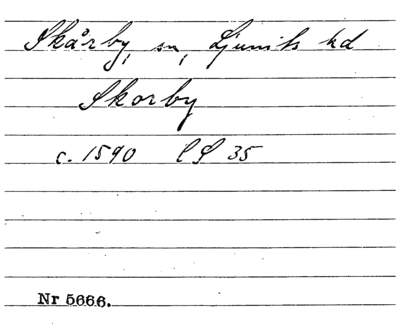 Skårby, sn, Ljunits hd
Skorby
c. 1590 CS 35
Nr 5666.